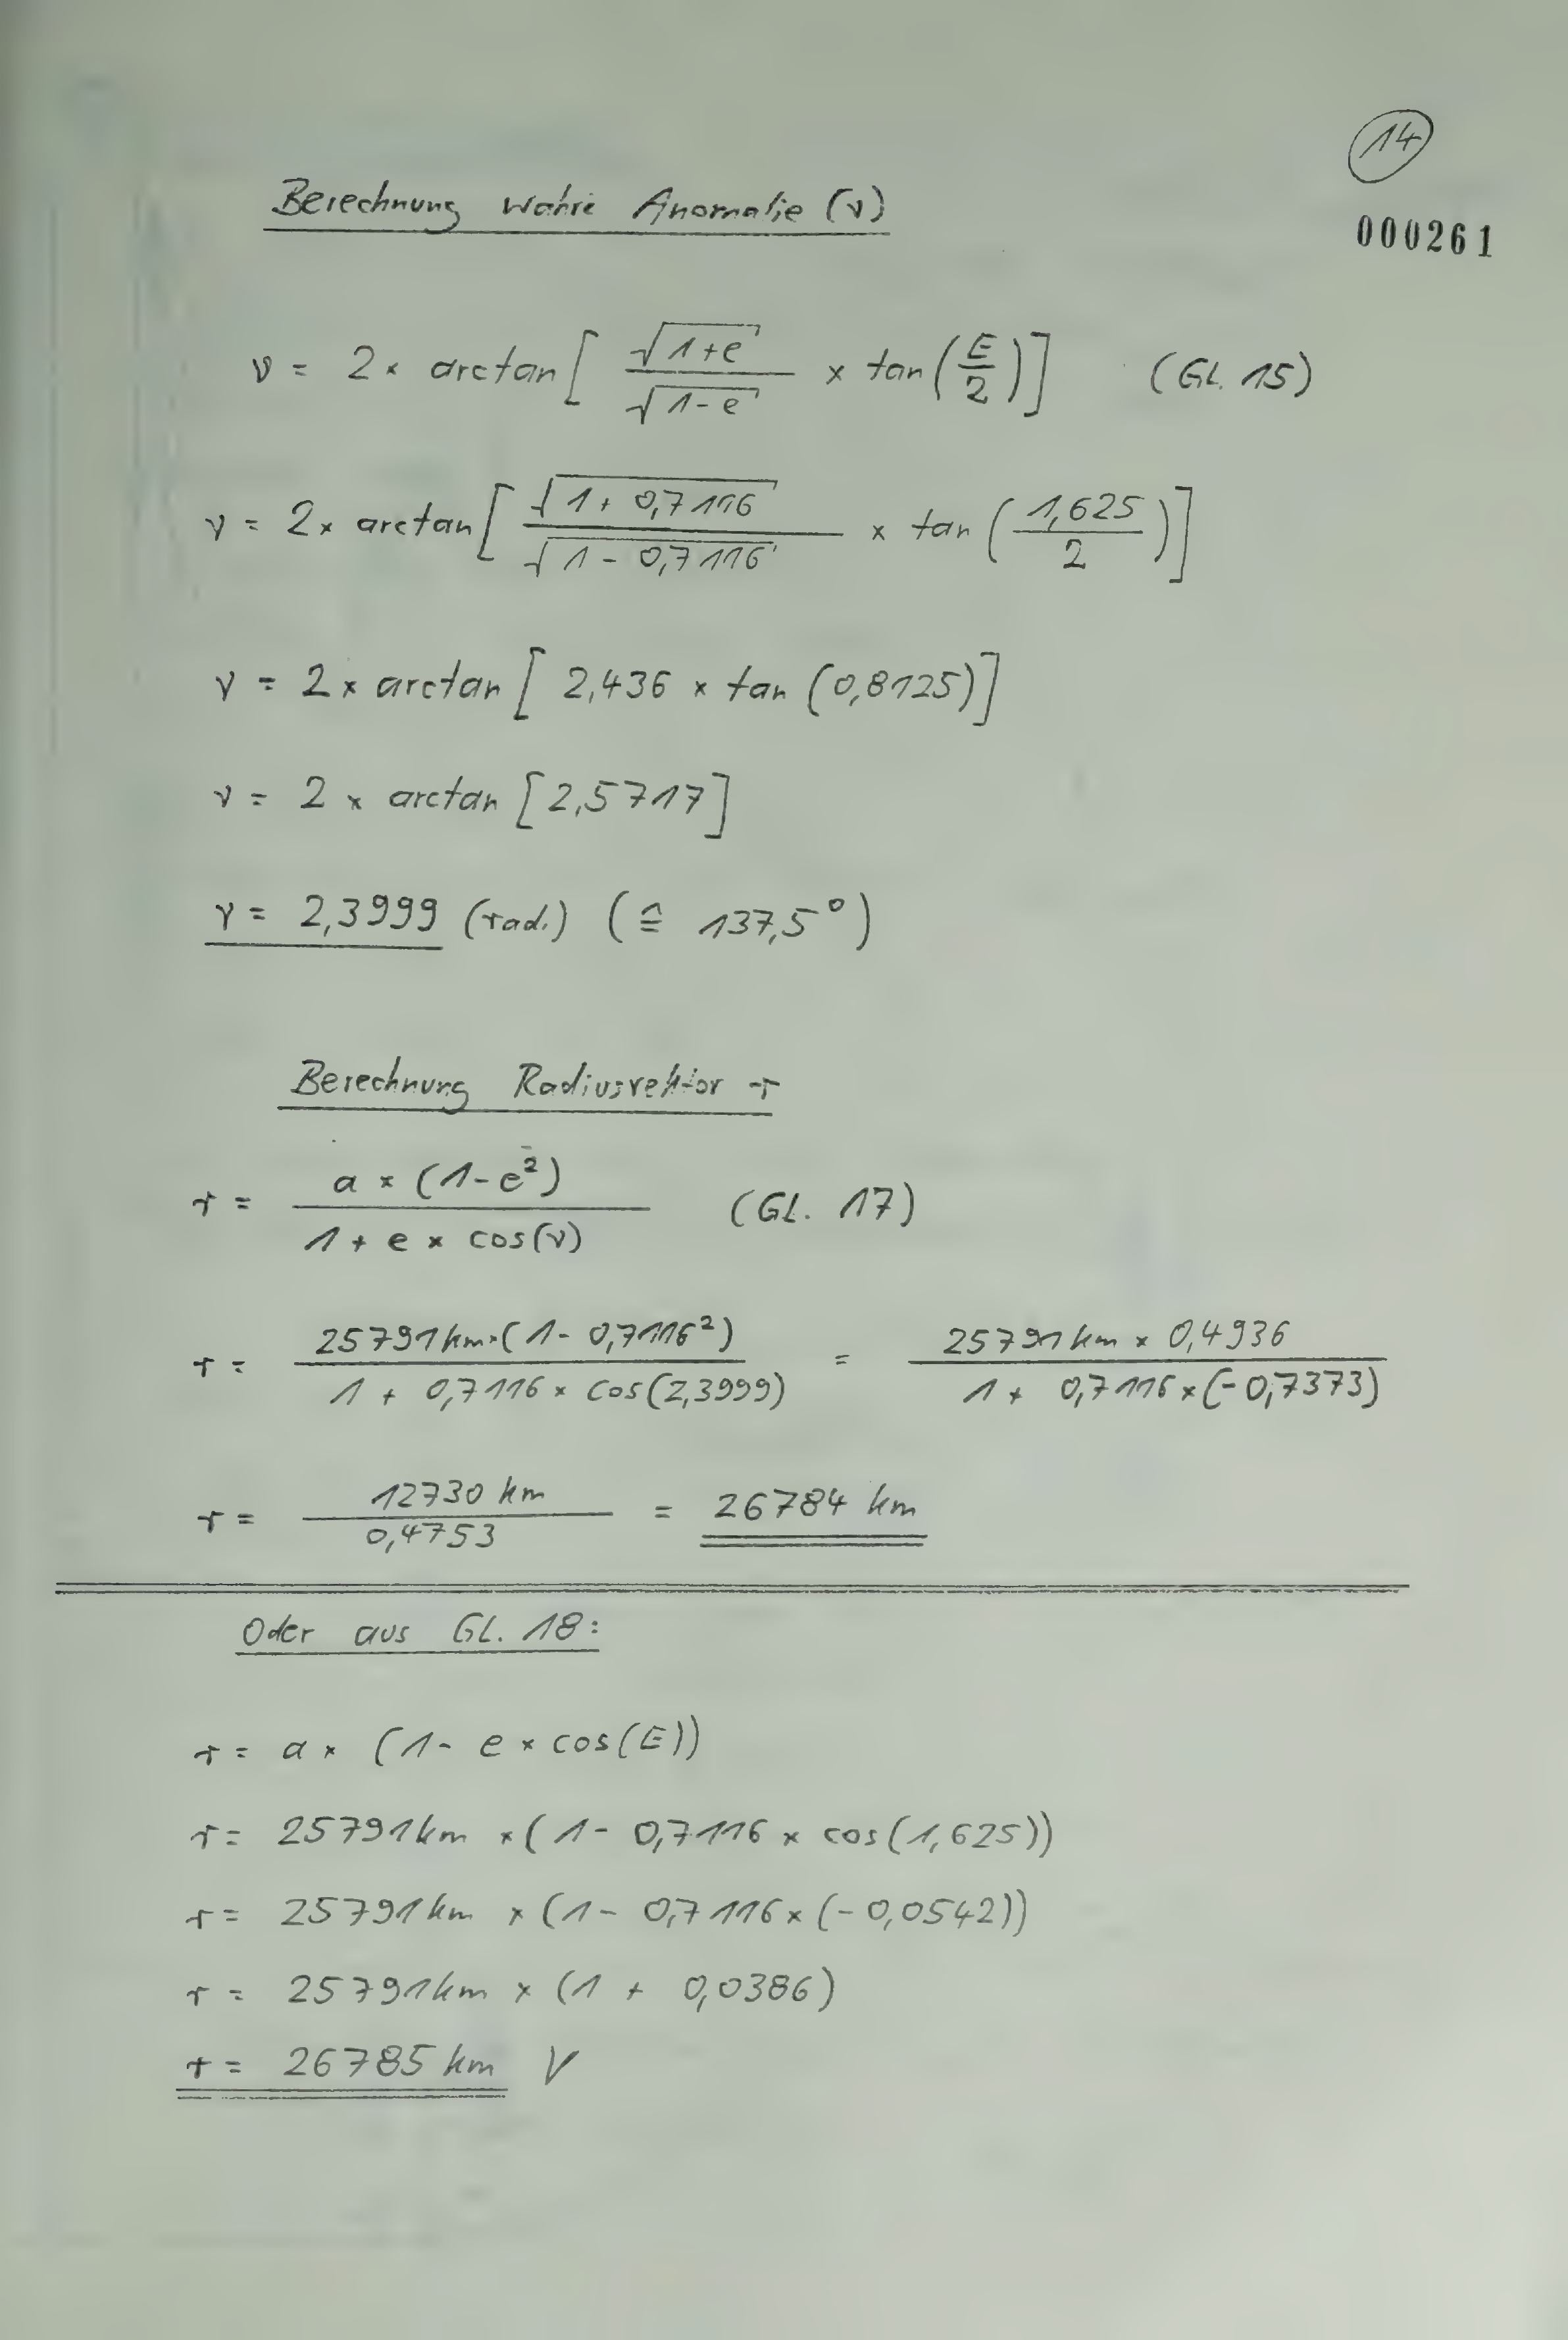 14
Berechnung wahre Anomalie (ν)
000261
ν = 2 × arctan [ √1+e / √1-e × tan (E/2) ] (GL. 15)
ν = 2 × arctan [ √1 + 0,7116 / √1 - 0,7116 × tan (1,625/2) ]
ν = 2 × arctan [ 2,436 × tan (0,8125) ]
ν = 2 × arctan [2,5717]
ν = 2,3999 (rad.) (≙ 137,5°)
Berechnung Radiusvektor r
r = a × (1-e²) / 1 + e × cos(ν) (GL. 17)
r = 25791km·(1 - 0,7116²) / 1 + 0,7116 × cos(2,3999) = 25791km × 0,4936 / 1 + 0,7116 × (-0,7373)
r = 12730 km / 0,4753 = 26784 km
Oder aus GL. 18:
r = a × (1 - e × cos(E))
r = 25791km × (1 - 0,7116 × cos(1,625))
r = 25791km × (1 - 0,7116 × (-0,0542))
r = 25791km × (1 + 0,0386)
r = 26785 km √